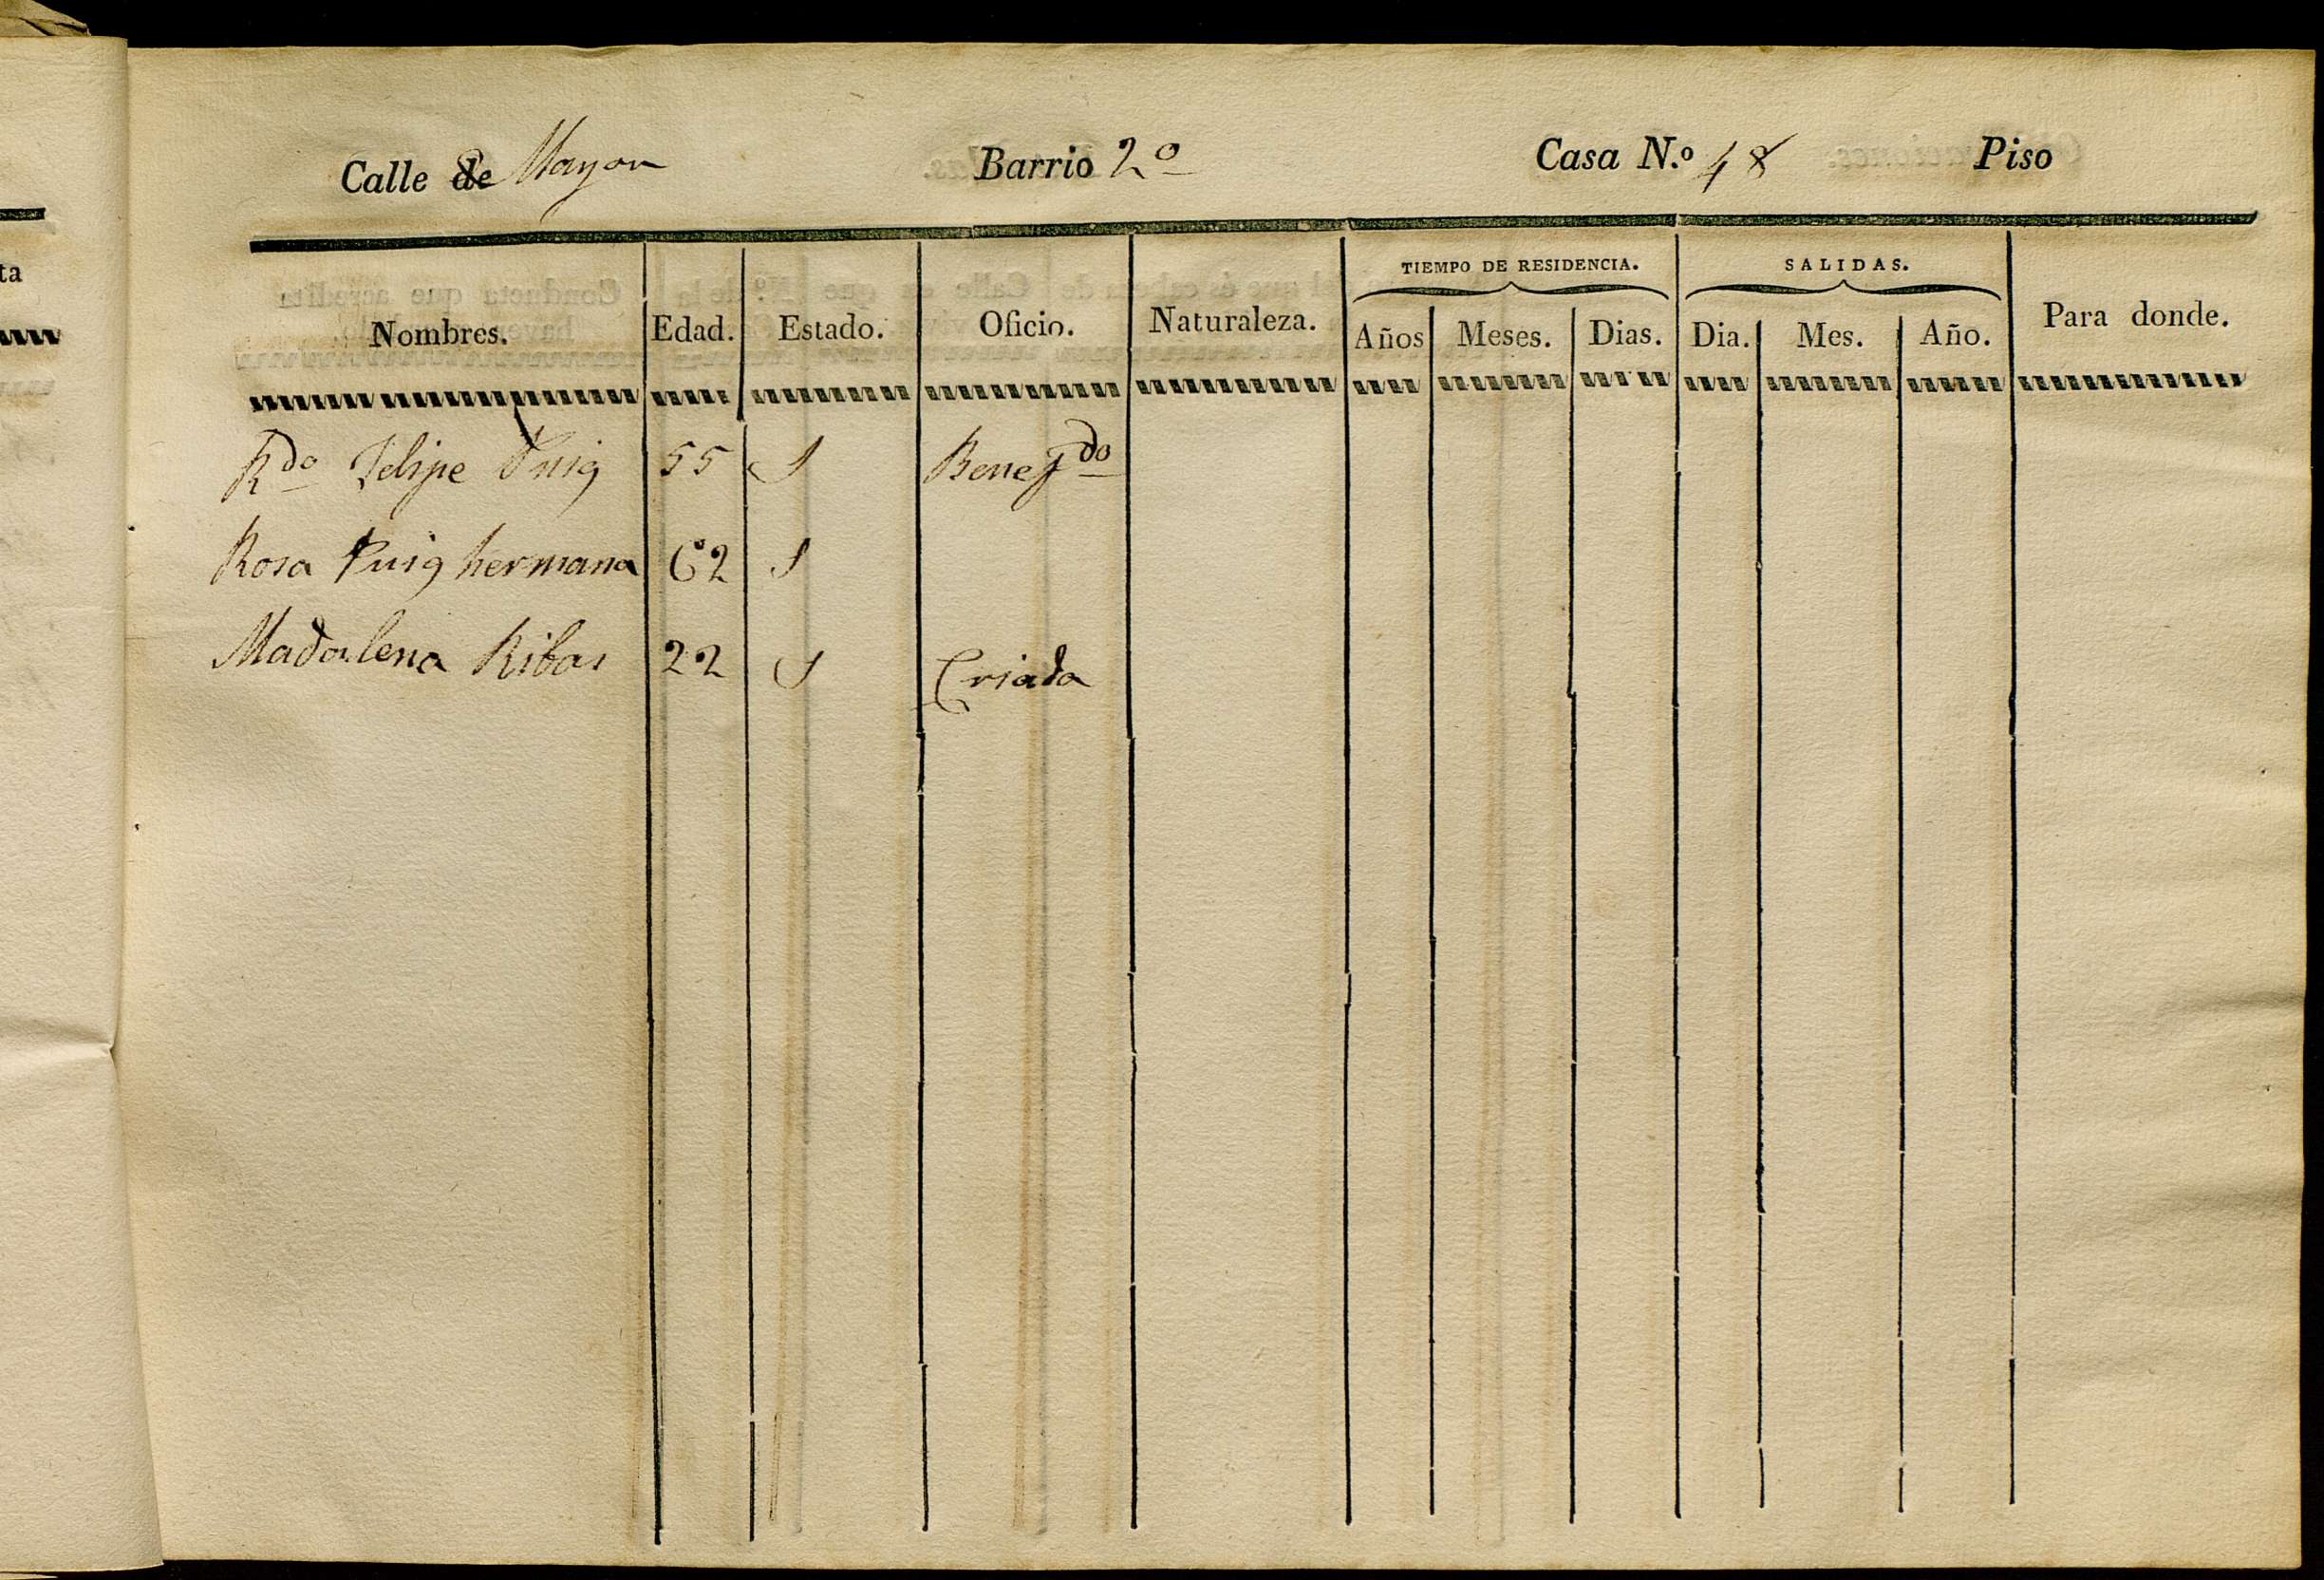 ta
Calle de Mayor Barrio 2º Casa N.º 48 Piso
TIEMPO DE RESIDENCIA. SALIDAS.
Nombres. Edad. Estado. Oficio. Naturaleza. Años Meses. Dias. Dia. Mes. Año. Para donde.
Rdo Felipe Puig 55 S Benefdo
Rosa Puig hermana 62 S
Madalena Ribas 22 S Criada